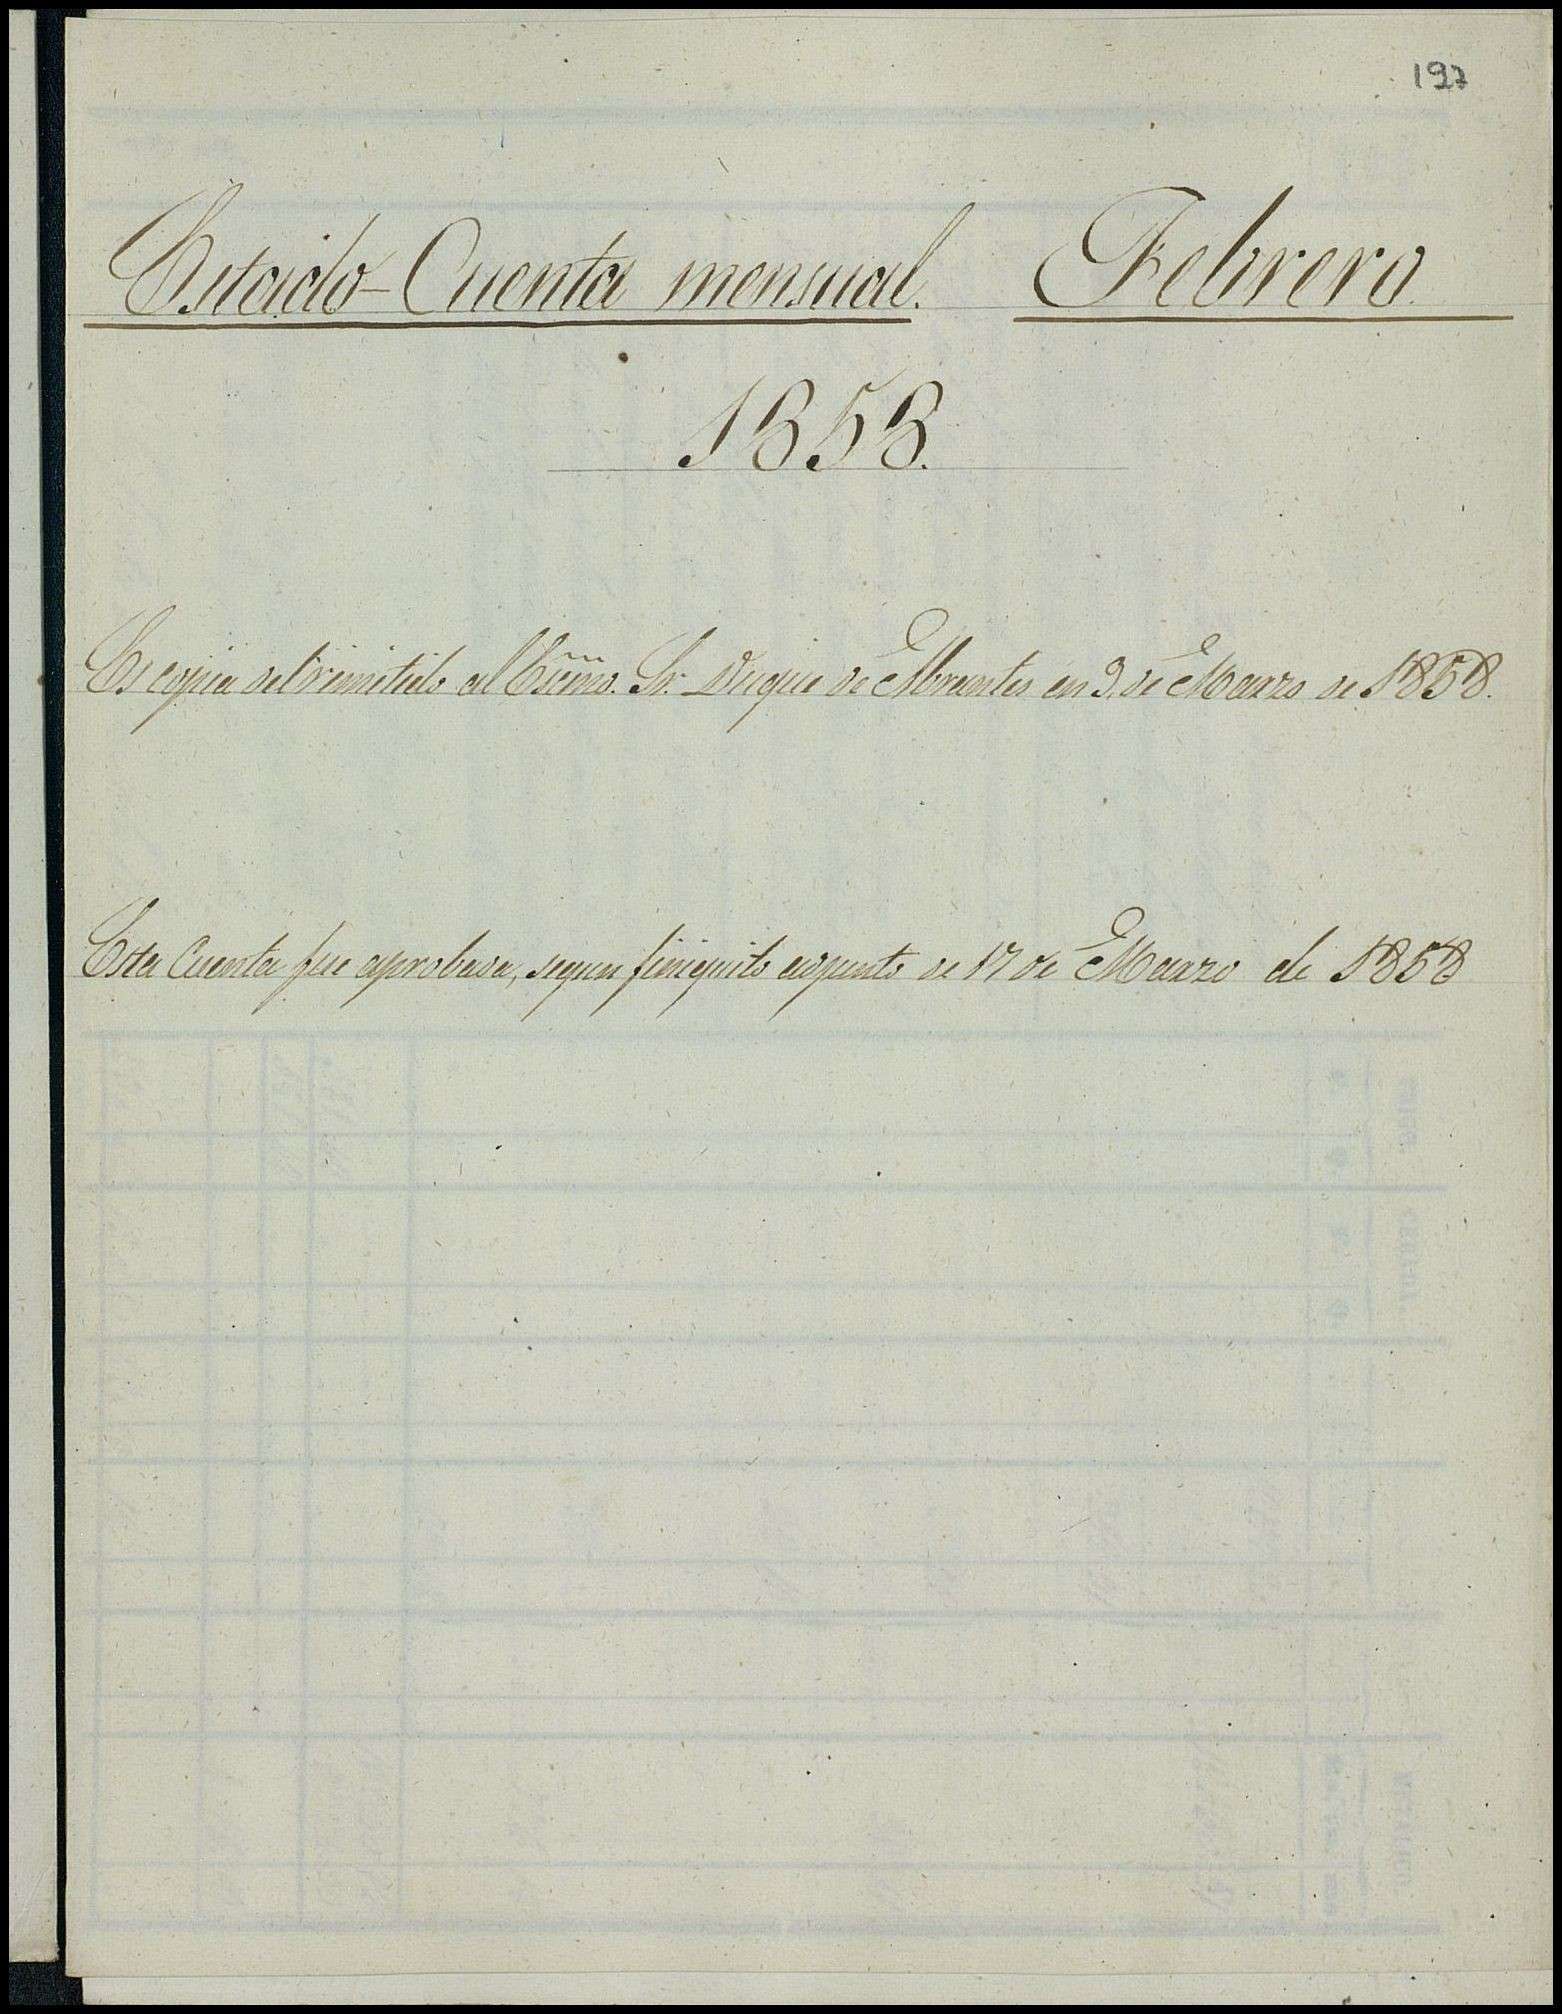 197
Estado-Cuenta mensual. Febrero.
1858.
Es copia del remitido al Excmo. Sr. Duque de Abrantes en 3. de Marzo de 1858.
Esta Cuenta fue aprobada, segun finiquito adjunto de 17 de Marzo de 1858